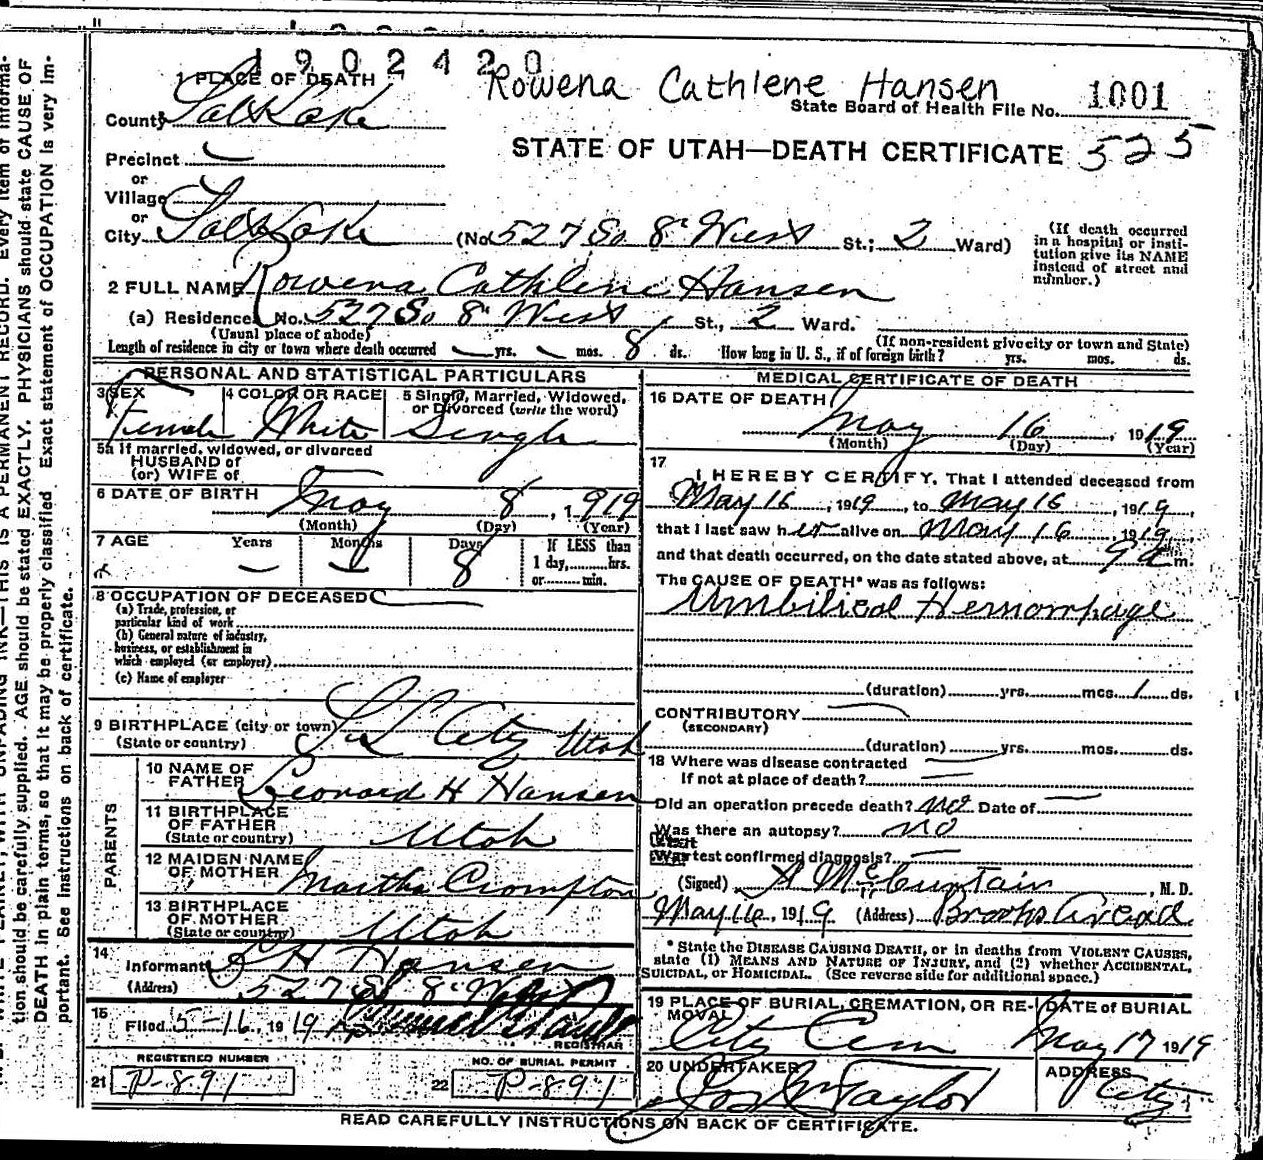 1902420
Rowena Cathlene Hansen
1 PLACE OF DEATH
State Board of Health File No. 1001
County Salt Lake
STATE OF UTAH—DEATH CERTIFICATE 525
Precinct —
or
Village
or
City Salt Lake (No. 527 So 8' West St.; 2 Ward)
(If death occurred in a hospital or insti-
tution give its NAME
instead of street and
number.)
2 FULL NAME Rowena Cathlene Hansen
(a) Residence. No. 527 So 8' West St., 2 Ward.
(Usual place of abode) (If non-resident give city or town and State)
Length of residence in city or town where death occurred — yrs. — mos. 8 ds. How long in U. S., if of foreign birth? yrs. mos. ds.
PERSONAL AND STATISTICAL PARTICULARS
3 SEX Female
4 COLOR OR RACE White
5 Single, Married, Widowed,
or Divorced (write the word) Single
5a If married, widowed, or divorced
HUSBAND of
(or) WIFE of —
6 DATE OF BIRTH May 8, 1919
(Month) (Day) (Year)
7 AGE Years Months Days If LESS than
— — 8 1 day,......hrs.
or......min.
8 OCCUPATION OF DECEASED
(a) Trade, profession, or
particular kind of work
(b) General nature of industry,
business, or establishment in
which employed (or employer)
(c) Name of employer
9 BIRTHPLACE (city or town) S L City Utah
(State or country)
PARENTS
10 NAME OF
FATHER Leonard H Hansen
11 BIRTHPLACE
OF FATHER
(State or country) Utah
12 MAIDEN NAME
OF MOTHER Martha Crompton
13 BIRTHPLACE
OF MOTHER
(State or country) Utah
14
Informant L H Hansen
(Address) 527 So 8' West
15
Filed 5-16, 1919
REGISTRAR
REGISTERED NUMBER NO. OF BURIAL PERMIT
21 P-891 22 P-891
MEDICAL CERTIFICATE OF DEATH
16 DATE OF DEATH
May 16, 1919
(Month) (Day) (Year)
17
I HEREBY CERTIFY, That I attended deceased from
May 16, 1919, to May 16, 1919,
that I last saw her alive on May 16 1919
and that death occurred, on the date stated above, at 9 a m.
The CAUSE OF DEATH* was as follows:
Umbilical Hemorrhage
(duration) yrs. mos. 1 ds.
CONTRIBUTORY —
(SECONDARY)
(duration) yrs. mos. ds.
18 Where was disease contracted —
If not at place of death? —
Did an operation precede death? no Date of —
Was there an autopsy? no
What test confirmed diagnosis? —
(Signed) , M. D.
May 16, 1919 (Address) Brooks Arcade
* State the DISEASE CAUSING DEATH, or in deaths from VIOLENT CAUSES,
state (1) MEANS AND NATURE OF INJURY, and (2) whether ACCIDENTAL,
SUICIDAL, or HOMICIDAL. (See reverse side for additional space.)
19 PLACE OF BURIAL, CREMATION, OR RE-
MOVAL City Cem
DATE OF BURIAL
May 17 1919
20 UNDERTAKER
Taylor
ADDRESS
City
READ CAREFULLY INSTRUCTIONS ON BACK OF CERTIFICATE.
INK—THIS IS A PERMANENT RECORD. Every item of informa-
tion should be carefully supplied. AGE should be stated EXACTLY. PHYSICIANS should state CAUSE OF
DEATH in plain terms, so that it may be properly classified. Exact statement of OCCUPATION is very im-
portant. See instructions on back of certificate.